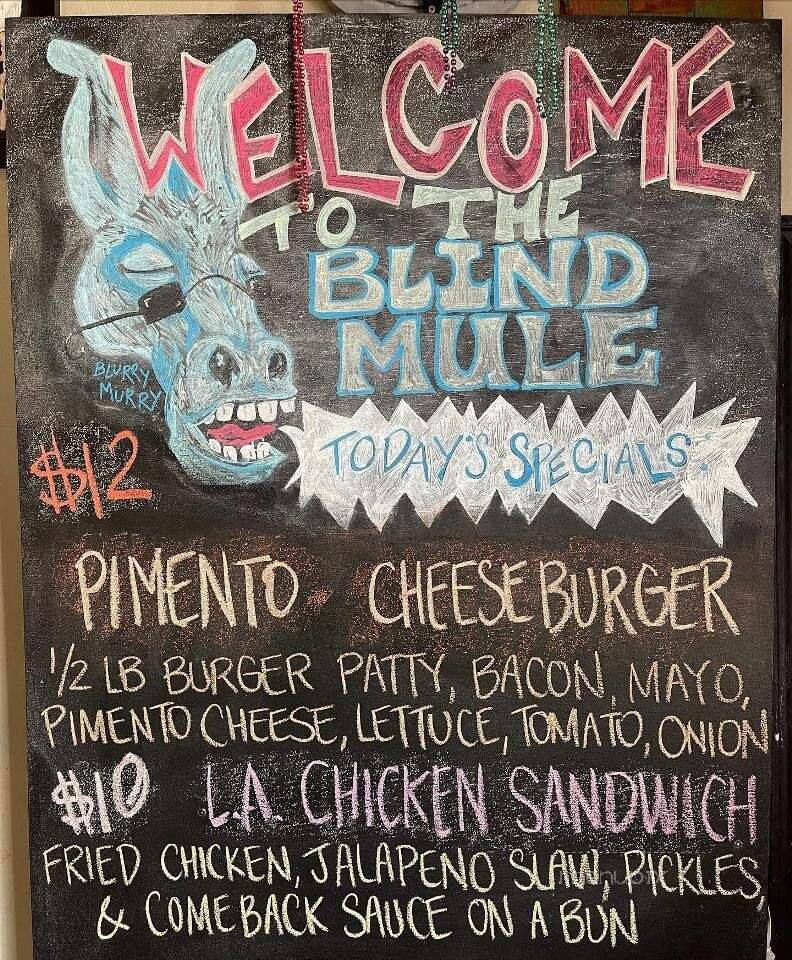 WELCOME
TO THE
BLIND
MULE
BLURRY
MURRY
TODAY'S SPECIALS:
$12
PIMENTO CHEESEBURGER
1/2 LB BURGER PATTY, BACON, MAYO,
PIMENTO CHEESE, LETTUCE, TOMATO, ONION
$10 L.A. CHICKEN SANDWICH
FRIED CHICKEN, JALAPENO SLAW, PICKLES,
& COMEBACK SAUCE ON A BUN